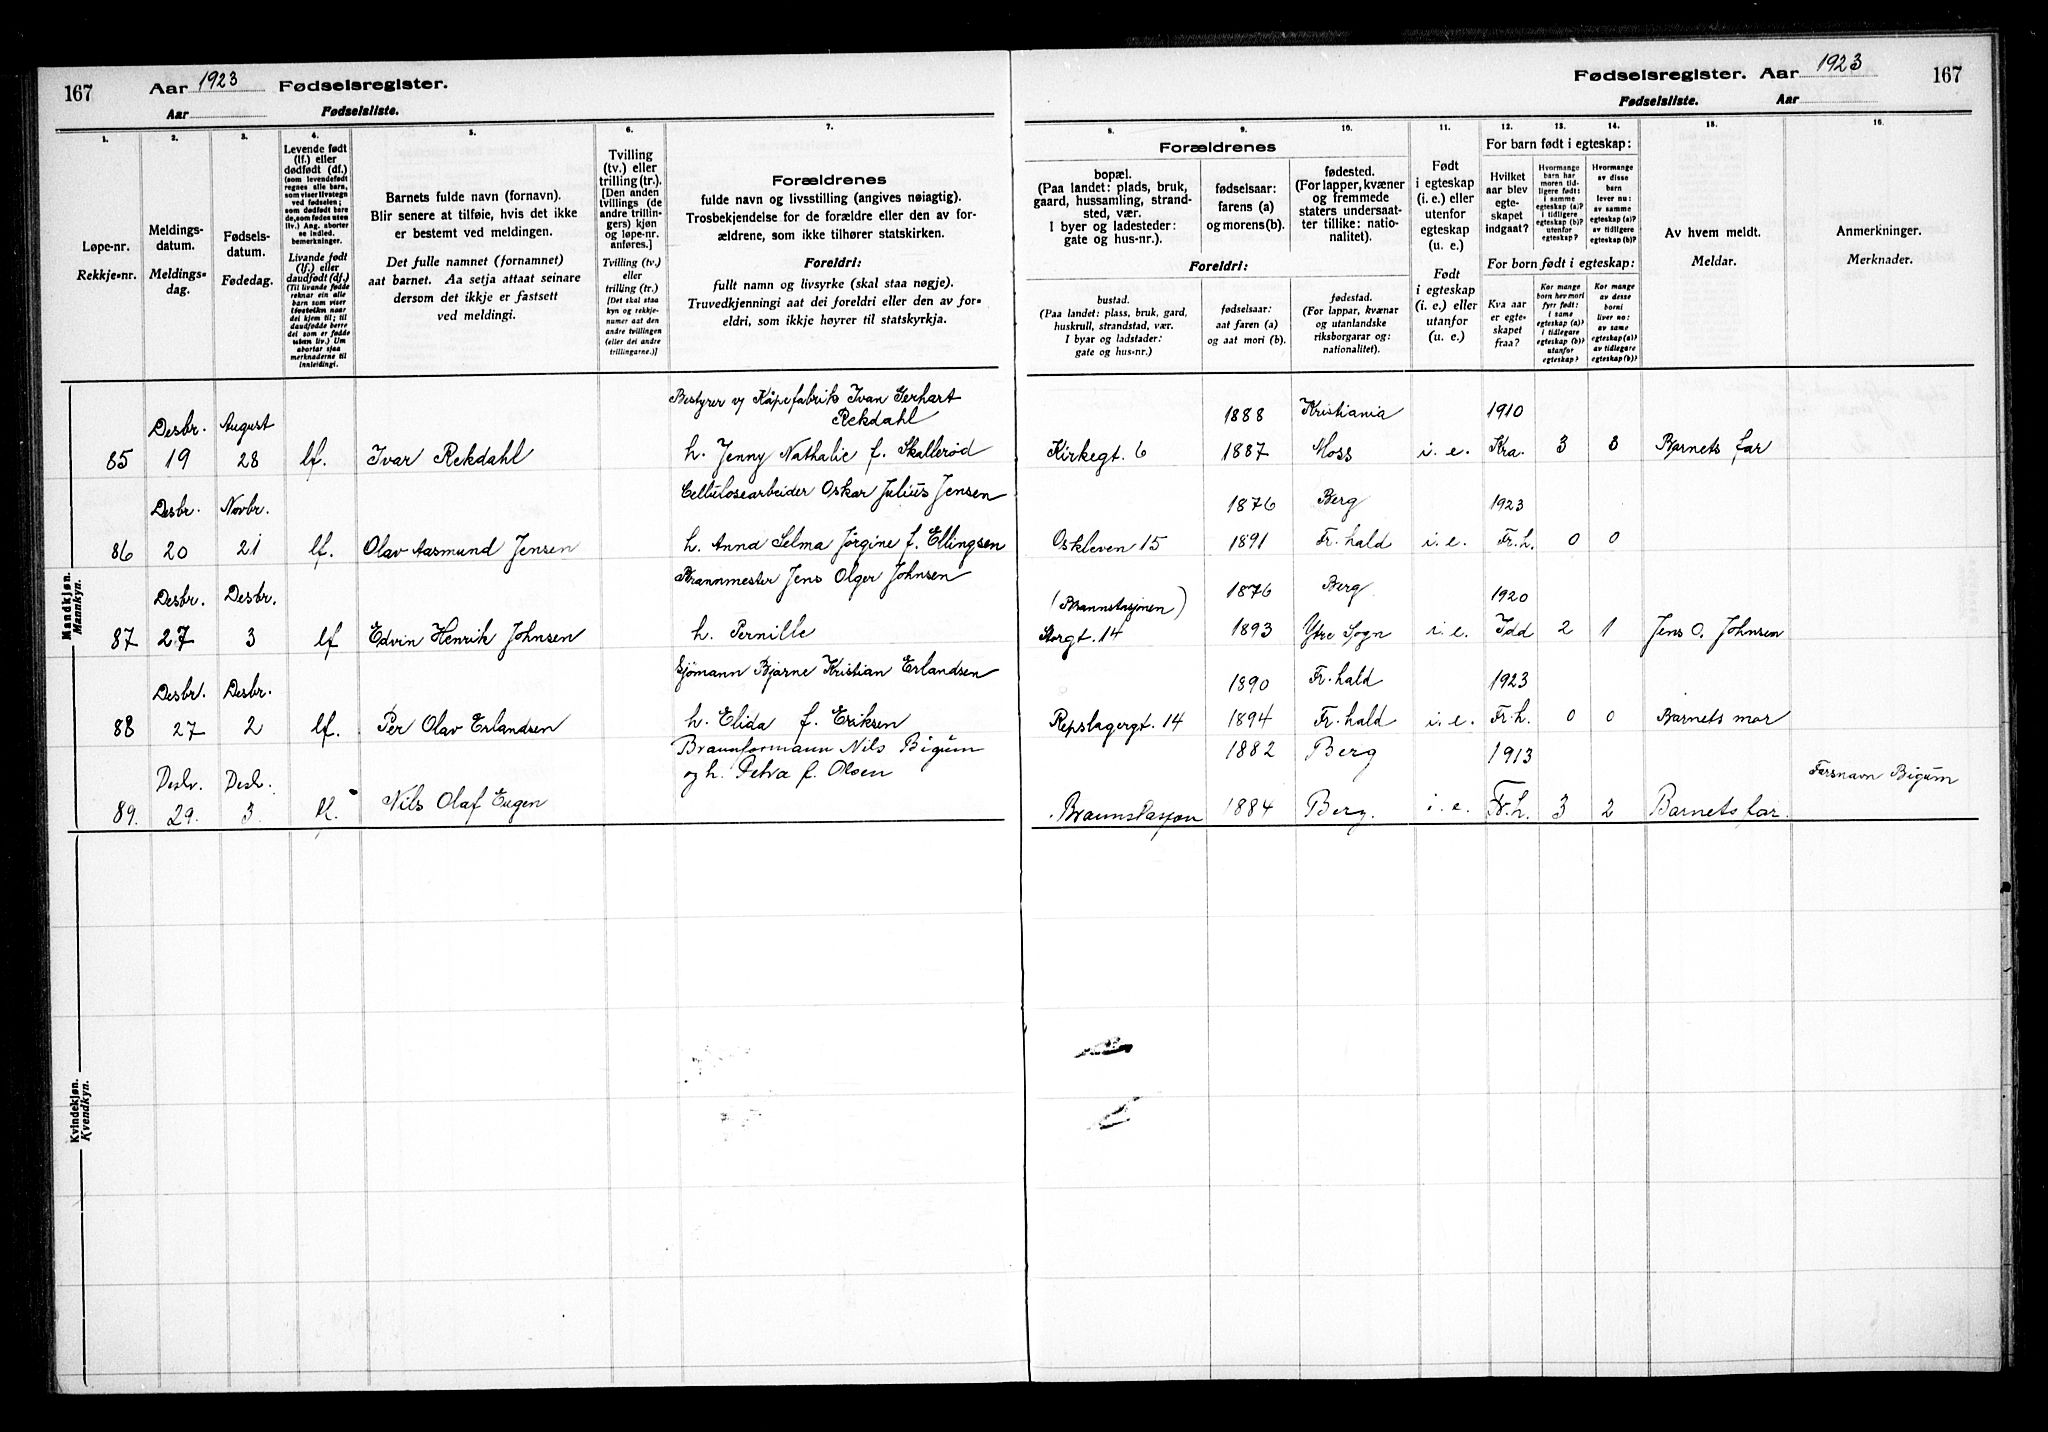 167
Aar 1923 Fødselsregister.
Aar Fødselsliste.
1.
2.
3.
4.
5.
6.
7.
Løpe-nr.
Rekkje-nr.
Meldings-
datum.
Meldings-
dag.
Fødsels-
datum.
Fødedag.
Levende født
(lf.) eller
dødfødt (df.)
(som levendefødt
regnes alle barn,
som viser livstegn
ved fødselen;
som dødfødt bare
de, som fødes uten
liv.) Ang. aborter
se indled.
bemerkninger.
Livande født
(lf.) eller
daudfødt (df.)
(Til livande fødde
reknar ein alle
born som viser
livsteikn naar
dei kjem til; til
daudfødde berre
dei som er fødde
utan liv.) Um
abortar sjaa
merknaderne til
innleidingi.
Barnets fulde navn (fornavn).
Blir senere at tilføie, hvis det ikke
er bestemt ved meldingen.
Det fulle namnet (fornamnet)
aat barnet. Aa setja attaat seinare
dersom det ikkje er fastsett
ved meldingi.
Tvilling
(tv.) eller
trilling (tr.).
[Den anden
tvillings (de
andre trillin-
gers) kjøn
og løpe-nr.
anføres.]
Tvilling (tv.)
eller
trilling (tr.)
[Det skal staa
kyn og rekkje-
numer aat den
andre tvillingen
(eller dei andre
trillingarne.)]
Forældrenes
fulde navn og livsstilling (angives nøiagtig).
Trosbekjendelse for de forældre eller den av for-
ældrene, som ikke tilhører statskirken.
Foreldri:
fullt namn og livsyrke (skal staa nøgje).
Truvedkjenningi aat dei foreldri eller den av for-
eldri, som ikkje høyrer til statskyrkja.
Mandkjøn.
Mannkyn.
Bestyrer v/ Kåpefabrik Ivan Gerhart
Rekdahl
Desbr. August
85 19 28 lf. Ivar Rekdahl h. Jenny Nathalie f. Skallerød
Cellulosearbeider Oskar Julius Jensen
Desbr. Novbr.
86 20 21 lf. Olav Aasmund Jensen h. Anna Selma Jørgine f. Ellingsen
Brannmester Jens Olger Johnsen
Desbr. Desbr.
87 27 3 lf Edvin Henrik Johnsen h. Pernille
Sjømann Bjarne Kristian Erlandsen
Desbr. Desbr.
88 27 2 lf. Per Olav Erlandsen h. Elida f. Eriksen
Brannformann Nils Bigum
og h. Petra f. Olsen
Desbr. Desbr.
89. 29. 3. lf. Nils Olaf Eugen
Kvindekjøn.
Kvendkyn.
Fødselsregister. Aar 1923 167
Fødselsliste. Aar
8.
9.
10.
11.
12.
13.
14.
15.
16.
Forældrenes
bopæl.
(Paa landet: plads, bruk,
gaard, hussamling, strand-
sted, vær.
I byer og ladesteder:
gate og hus-nr.).
fødselsaar:
farens (a)
og morens (b).
fødested.
(For lapper, kvæner
og fremmede
staters undersaat-
ter tillike: natio-
nalitet).
Foreldri:
bustad.
(Paa landet: plass, bruk, gard,
huskrull, strandstad, vær.
I byar og ladstader:
gate og hus-nr.)
fødselsaar:
aat faren (a)
og aat mori (b).
fødestad.
(For lappar, kvænar
og utanlandske
riksborgarar og:
nationalitet).
Født
i egteskap
(i. e.) eller
utenfor
egteskap
(u. e.)
Født
i egteskap
(i. e.) eller
utanfor
(u. e.)
For barn født i egteskap:
Hvilket
aar blev
egte-
skapet
indgaat?
Hvormange
barn har
moren tid-
ligere født:
i samme
egteskap (a)?
i tidligere
egteskap (b)?
utenfor
egteskap?
Hvormange
av disse
barn
lever nu:
av samme
egteskap (a)?
av tidligere
egteskap (b)?
For born født i egteskap:
Kva aar
er egte-
skapet
fraa?
Kor mange
born hev mori
fyrr født:
i same
egteskap (a)?
i tidlegare
egteskap (b)?
utanfor
egteskap?
Kor mange
av desse
borni
liver no:
av same
egteskap (a)?
av tidlegare
egteskap (b)?
Av hvem meldt.
Meldar.
Anmerkninger.
Merknader.
1888 Kristiania 1910
Kirkegt. 6 1887 Moss i. e. Kra. 3 3 Barnets far
1876 Berg 1923
Oskleven 15 1891 Fr. hald i. e. Fr. h. 0 0
1876 Berg 1920
(Brannstasjonen)
Storgt. 14 1893 Ytre Sogn i. e. Idd 2 1 Jens O. Johnsen
1890 Fr. hald 1923
Repslagergt. 14 1894 Fr. hald i. e. Fr. h. 0 0 Barnets mor
1882 Berg 1913
Farsnavn Bigum
Brannstasjon 1884 Berg. i. e. Fr. h. 3 2 Barnets far.